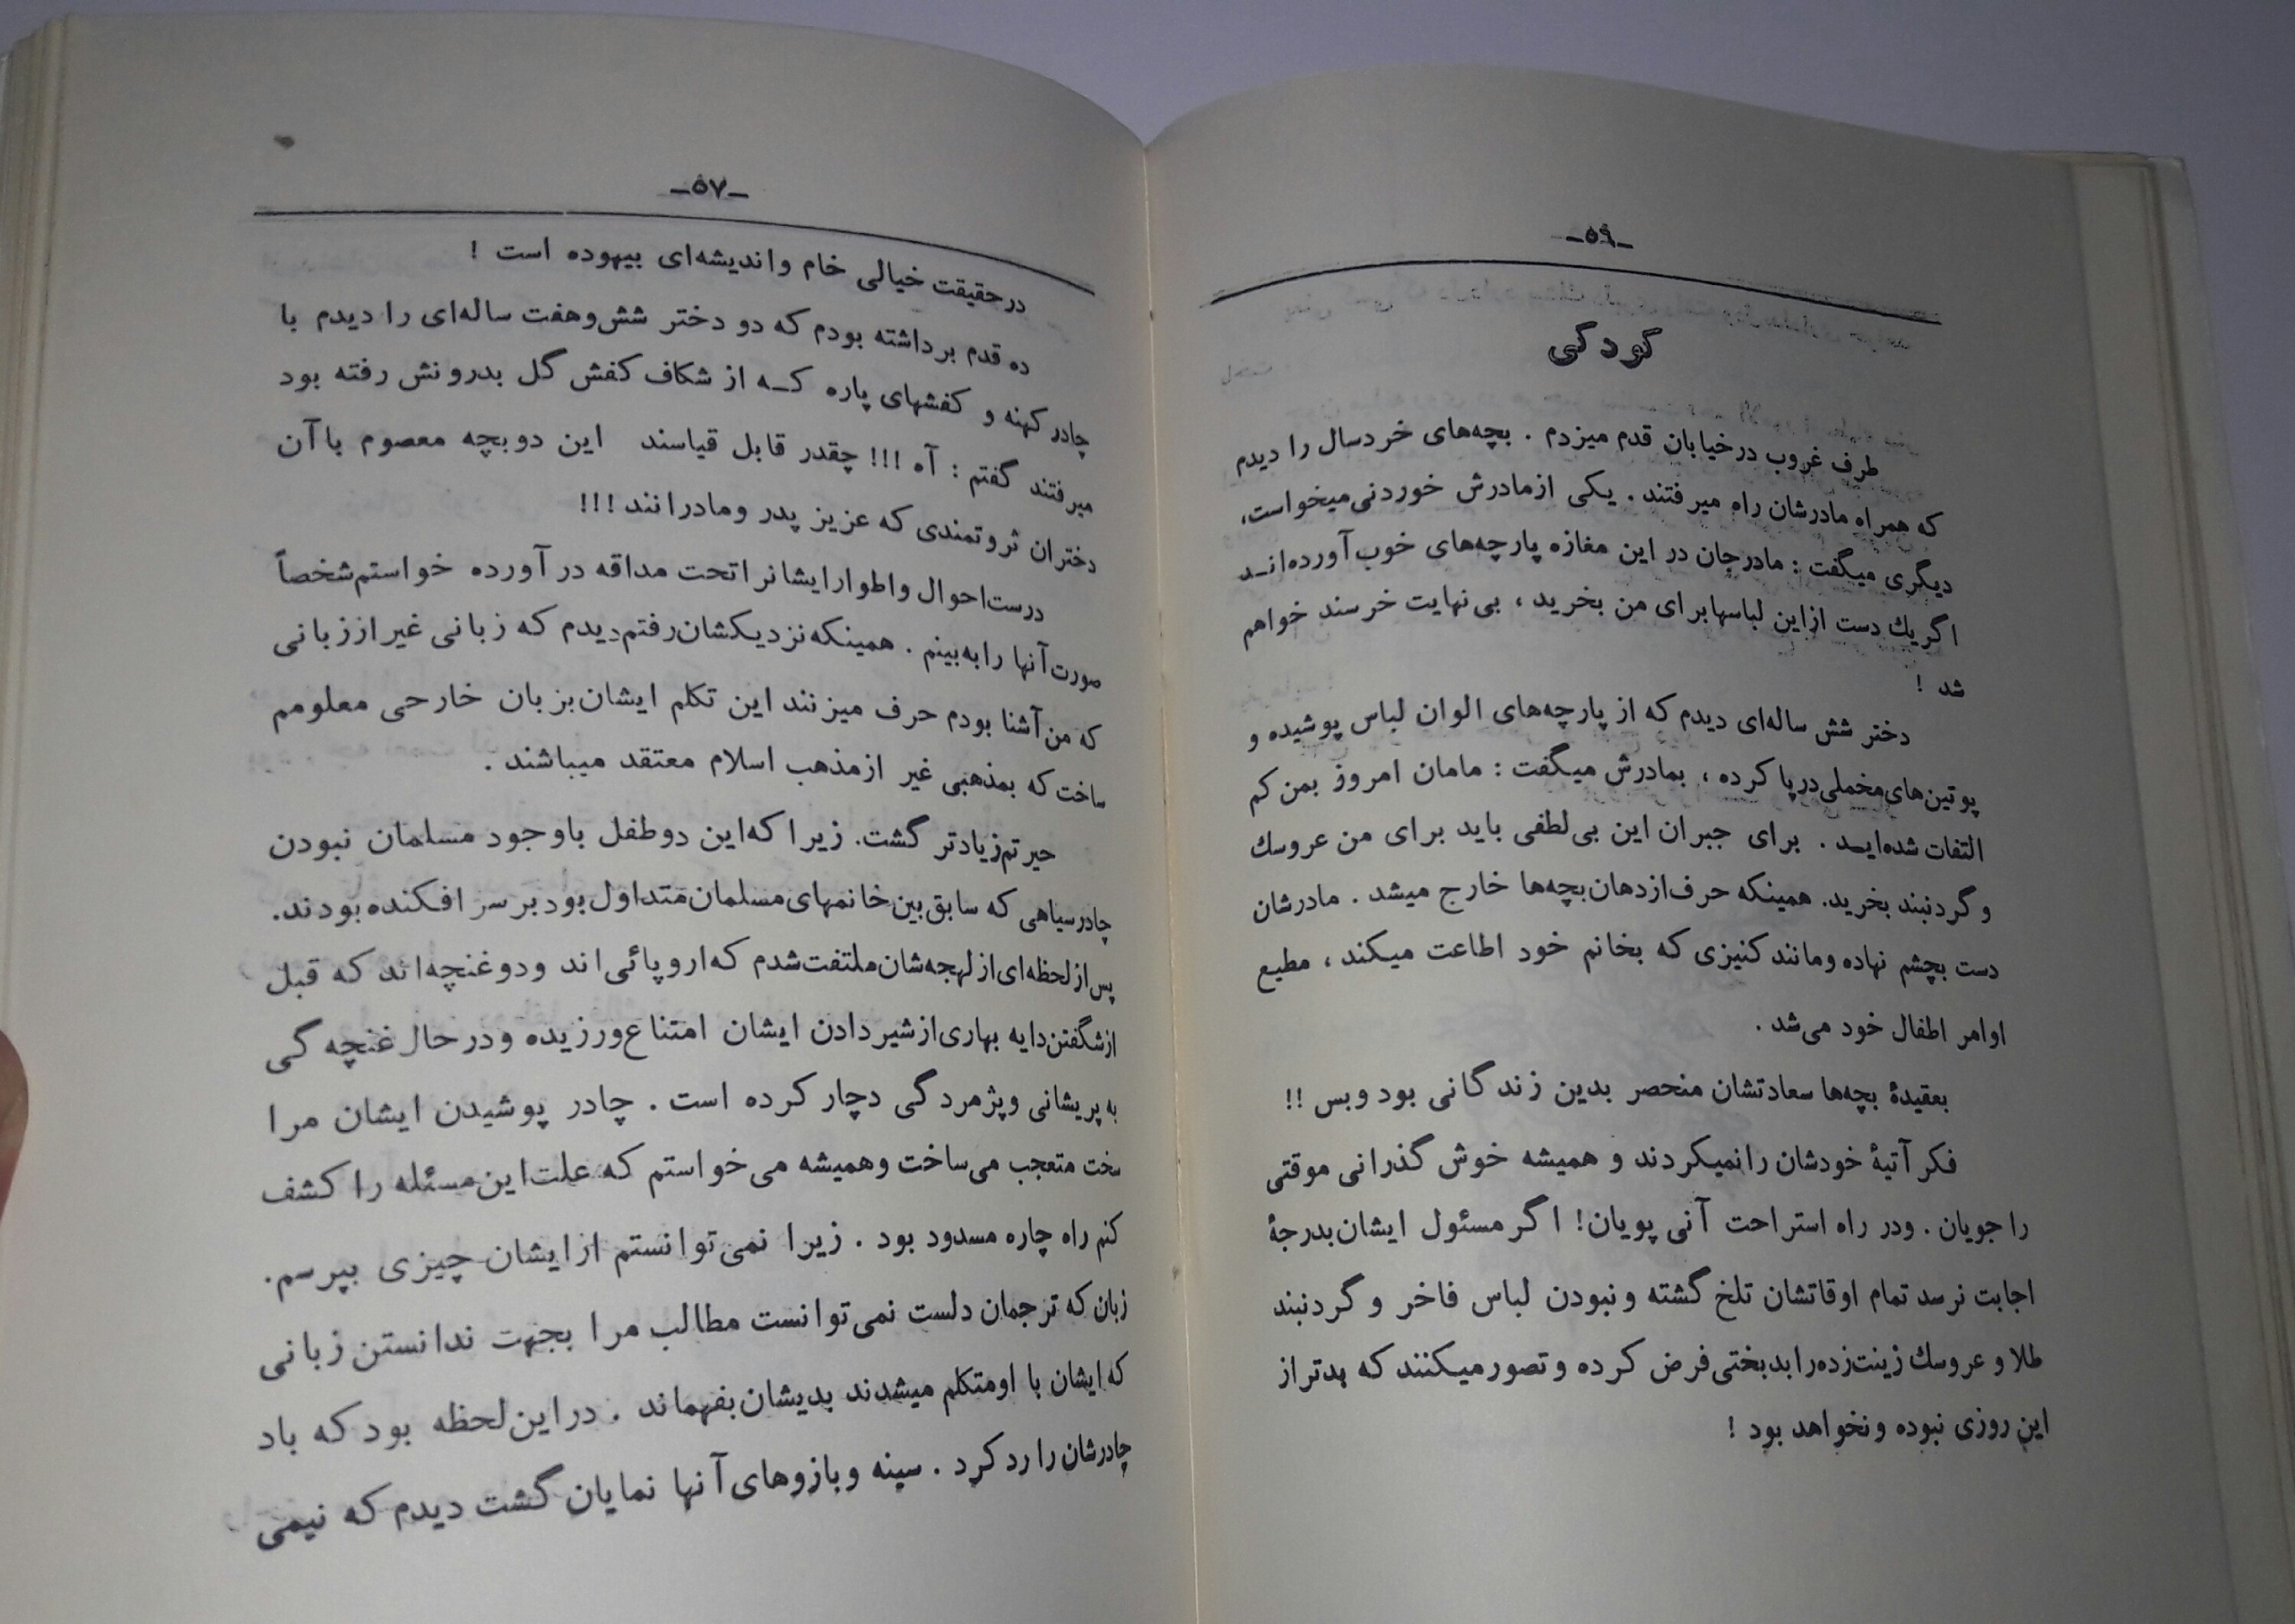 ـ۵۹ـ
کودکی
طرف غروب درخیابان قدم میزدم . بچه‌های خردسال را دیدم
که همراه مادرشان راه میرفتند . یکی ازمادرش خوردنی‌میخواست،
دیگری میگفت : مادرجان در این مغازه پارچه‌های خوب آورده‌انـد
اگریك دست ازاین لباسهابرای من بخرید ، بی‌نهایت خرسند خواهم
شد !
دختر شش ساله‌ای دیدم که از پارچه‌های الوان لباس پوشیده و
پوتین‌های‌مخملی‌درپا کرده ، بمادرش میگفت : مامان امروز بمن کم
التفات شده‌ایـد . برای جبران این بی‌لطفی باید برای من عروسك
و گردنبند بخرید. همینکه حرف‌ازدهان‌بچه‌ها خارج میشد . مادرشان
دست بچشم نهاده ومانند کنیزی که بخانم خود اطاعت میکند ، مطیع
اوامر اطفال خود می‌شد .
بعقیدهٔ بچه‌ها سعادتشان منحصر بدین زندگانی بود وبس !!
فکر آتیهٔ خودشان رانمیکردند و همیشه خوش گذرانی موقتی
را جویان . ودر راه استراحت آنی پویان! اگر مسئول ایشان‌بدرجهٔ
اجابت نرسد تمام اوقاتشان تلخ گشته ونبودن لباس فاخر و گردنبند
طلا و عروسك زینت‌زده‌رابدبختی‌فرض کرده وتصورمیکنند که بدتراز
این روزی نبوده ونخواهد بود !
ـ۵۷ـ
درحقیقت خیالی خام واندیشه‌ای بیهوده است !
ده قدم برداشته بودم که دو دختر شش‌وهفت ساله‌ای را دیدم با
چادر کهنه و کفشهای پاره کـه از شکاف کفش گل بدرونش رفته بود
میرفتند گفتم : آه !!! چقدر قابل قیاسند این دوبچه معصوم باآن
دختران ثروتمندی که عزیز پدر ومادرانند !!!
درست‌احوال واطوارایشانراتحت مداقه در آورده خواستم‌شخصاً
صورت‌آنها رابه‌بینم . همینکه‌نزدیکشان‌رفتم‌دیدم که زبانی غیراززبانی
که من‌آشنا بودم حرف میزنند این تکلم ایشان‌بزبان خارحی معلومم
ساخت که بمذهبی غیر ازمذهب اسلام معتقد میباشند .
حیرتم‌زیادتر گشت. زیرا که‌این دوطفل باوجود مسلمان نبودن
چادرسیاهی که سابق‌بین‌خانمهای‌مسلمان‌متداول‌بودبرسر افکنده‌بودند.
پس‌ازلحظه‌ای‌ازلهجه‌شان‌ملتفت‌شدم که‌اروپائی‌اند ودوغنچه‌اند که قبل
ازشگفتن‌دایه بهاری‌ازشیردادن ایشان امتناع‌ورزیده ودرحال‌غنچه گی
به پریشانی وپژمردگی دچار کرده است . چادر پوشیدن ایشان مرا
سخت متعجب می‌ساخت وهمیشه می‌خواستم که علت‌این‌مسئله را کشف
کنم راه چاره مسدود بود . زیرا نمی‌توانستم ازایشان چیزی بپرسم.
زبان که ترجمان دلست نمی‌توانست مطالب مرا بجهت ندانستن زبانی
که‌ایشان با اومتکلم میشدند بدیشان‌بفهماند . دراین‌لحظه بود که باد
چادرشان را رد کرد . سینه وبازوهای‌آنها نمایان گشت دیدم که نیمی